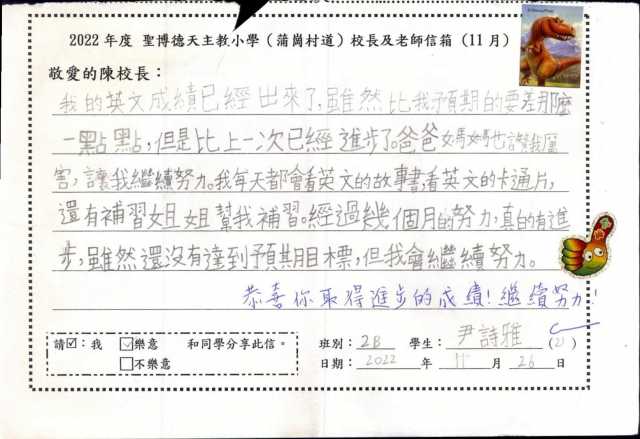 2022 年度 聖博德天主教小學（蒲崗村道）校長及老師信箱（11月）
敬愛的陳校長：
我的英文成績已經出來了,雖然比我預期的要差那麼
一點點,但是比上一次已經進步了。爸爸媽媽也讚我厲
害,讓我繼續努力。我每天都會看英文的故事書,看英文的卡通片,
還有補習姐姐幫我補習。經過幾個月的努力,真的有進
步,雖然還沒有達到預期目標,但我會繼續努力。
恭喜你取得進步的成績!繼續努力!
請☑：我 ☑樂意 和同學分享此信。
□不樂意
班別：2B 學生：尹詩雅 (2)
日期：2022 年 11 月 26 日